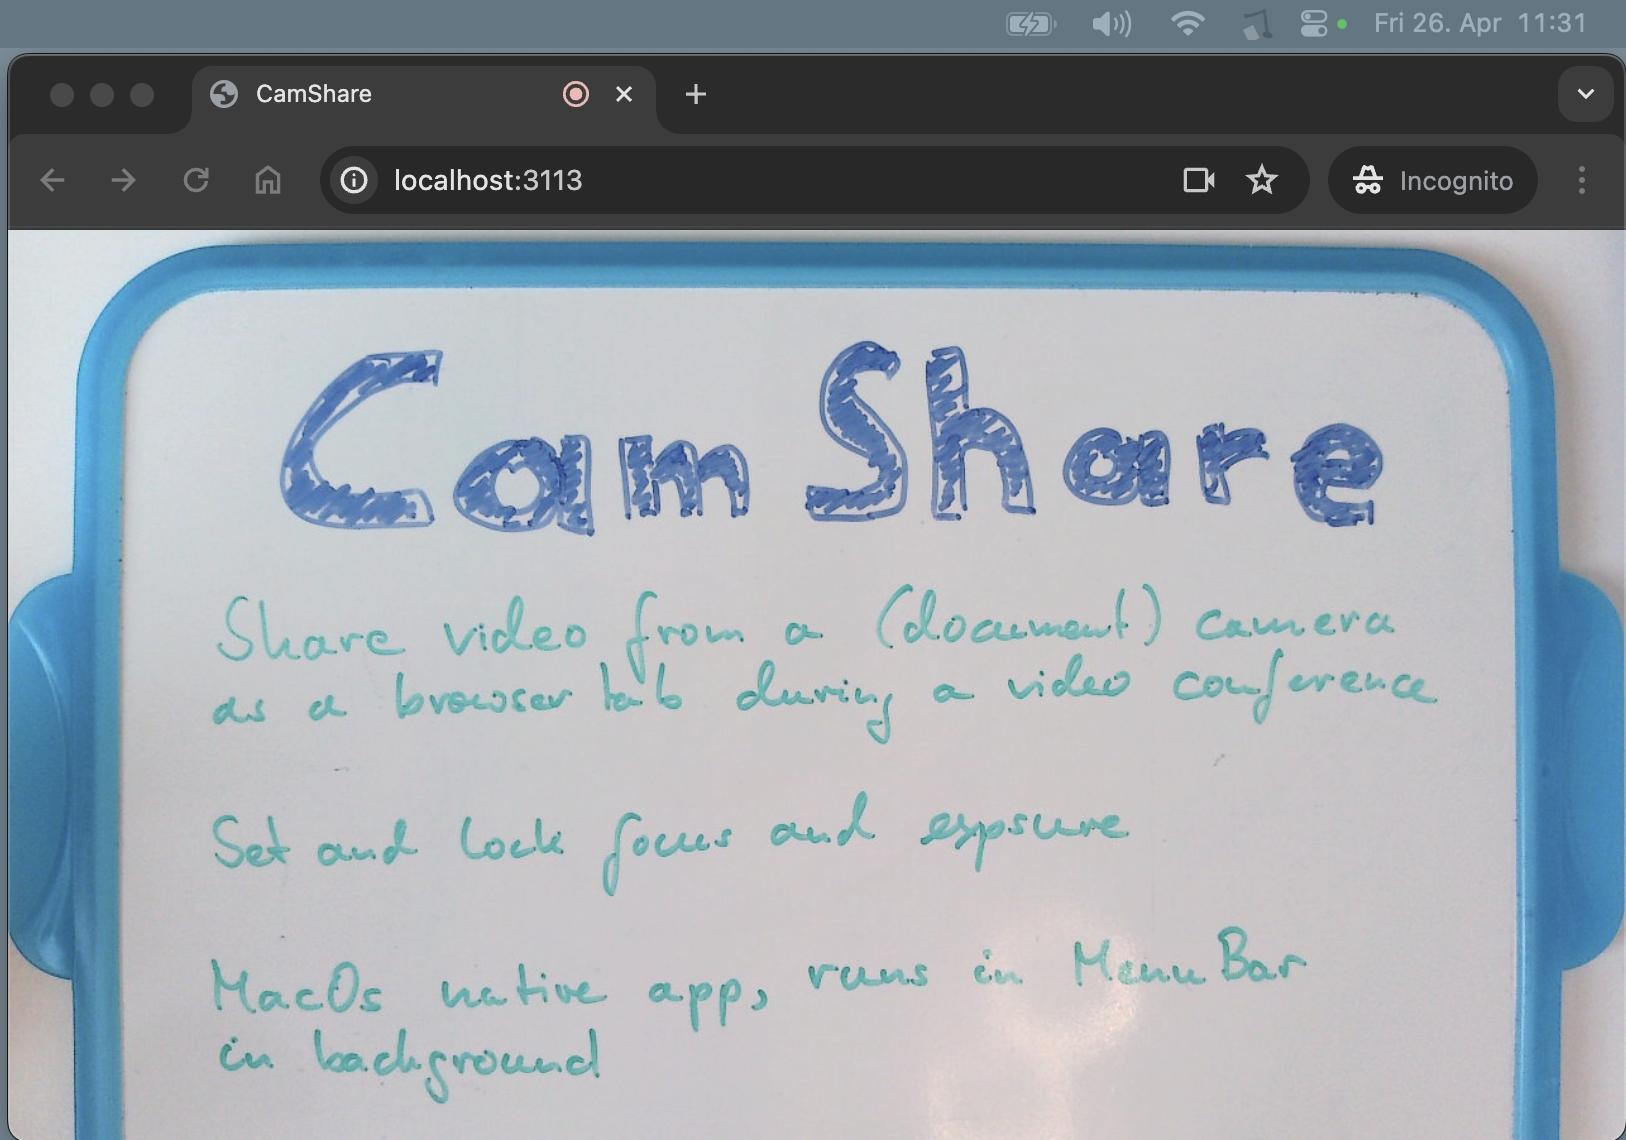 Fri 26. Apr 11:31
CamShare
localhost:3113
Incognito
Cam Share
Share video from a (document) camera
as a browser tab during a video conference
Set and lock focus and expsure
MacOs native app, runs in MenuBar
in background